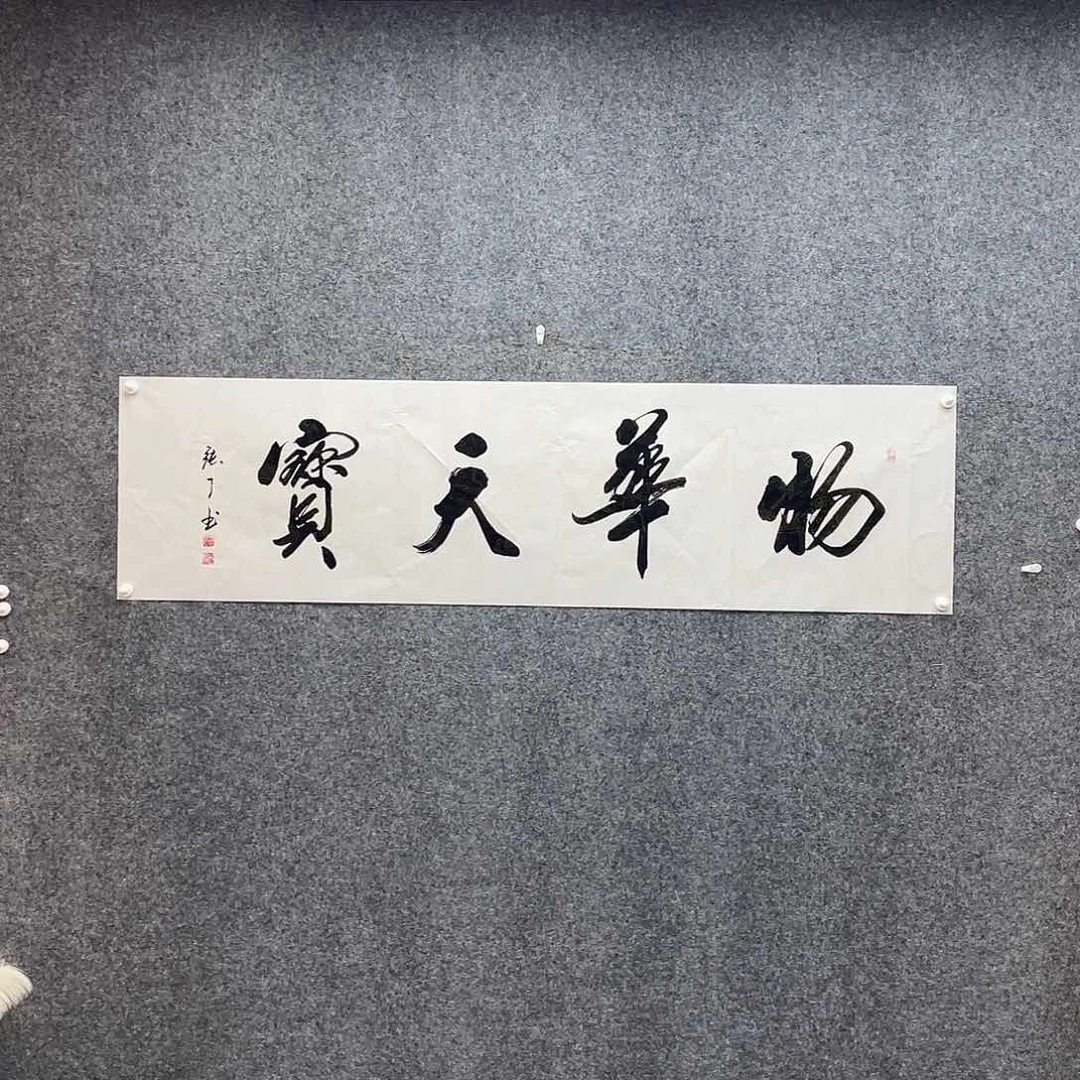 物華天寶
張丁书